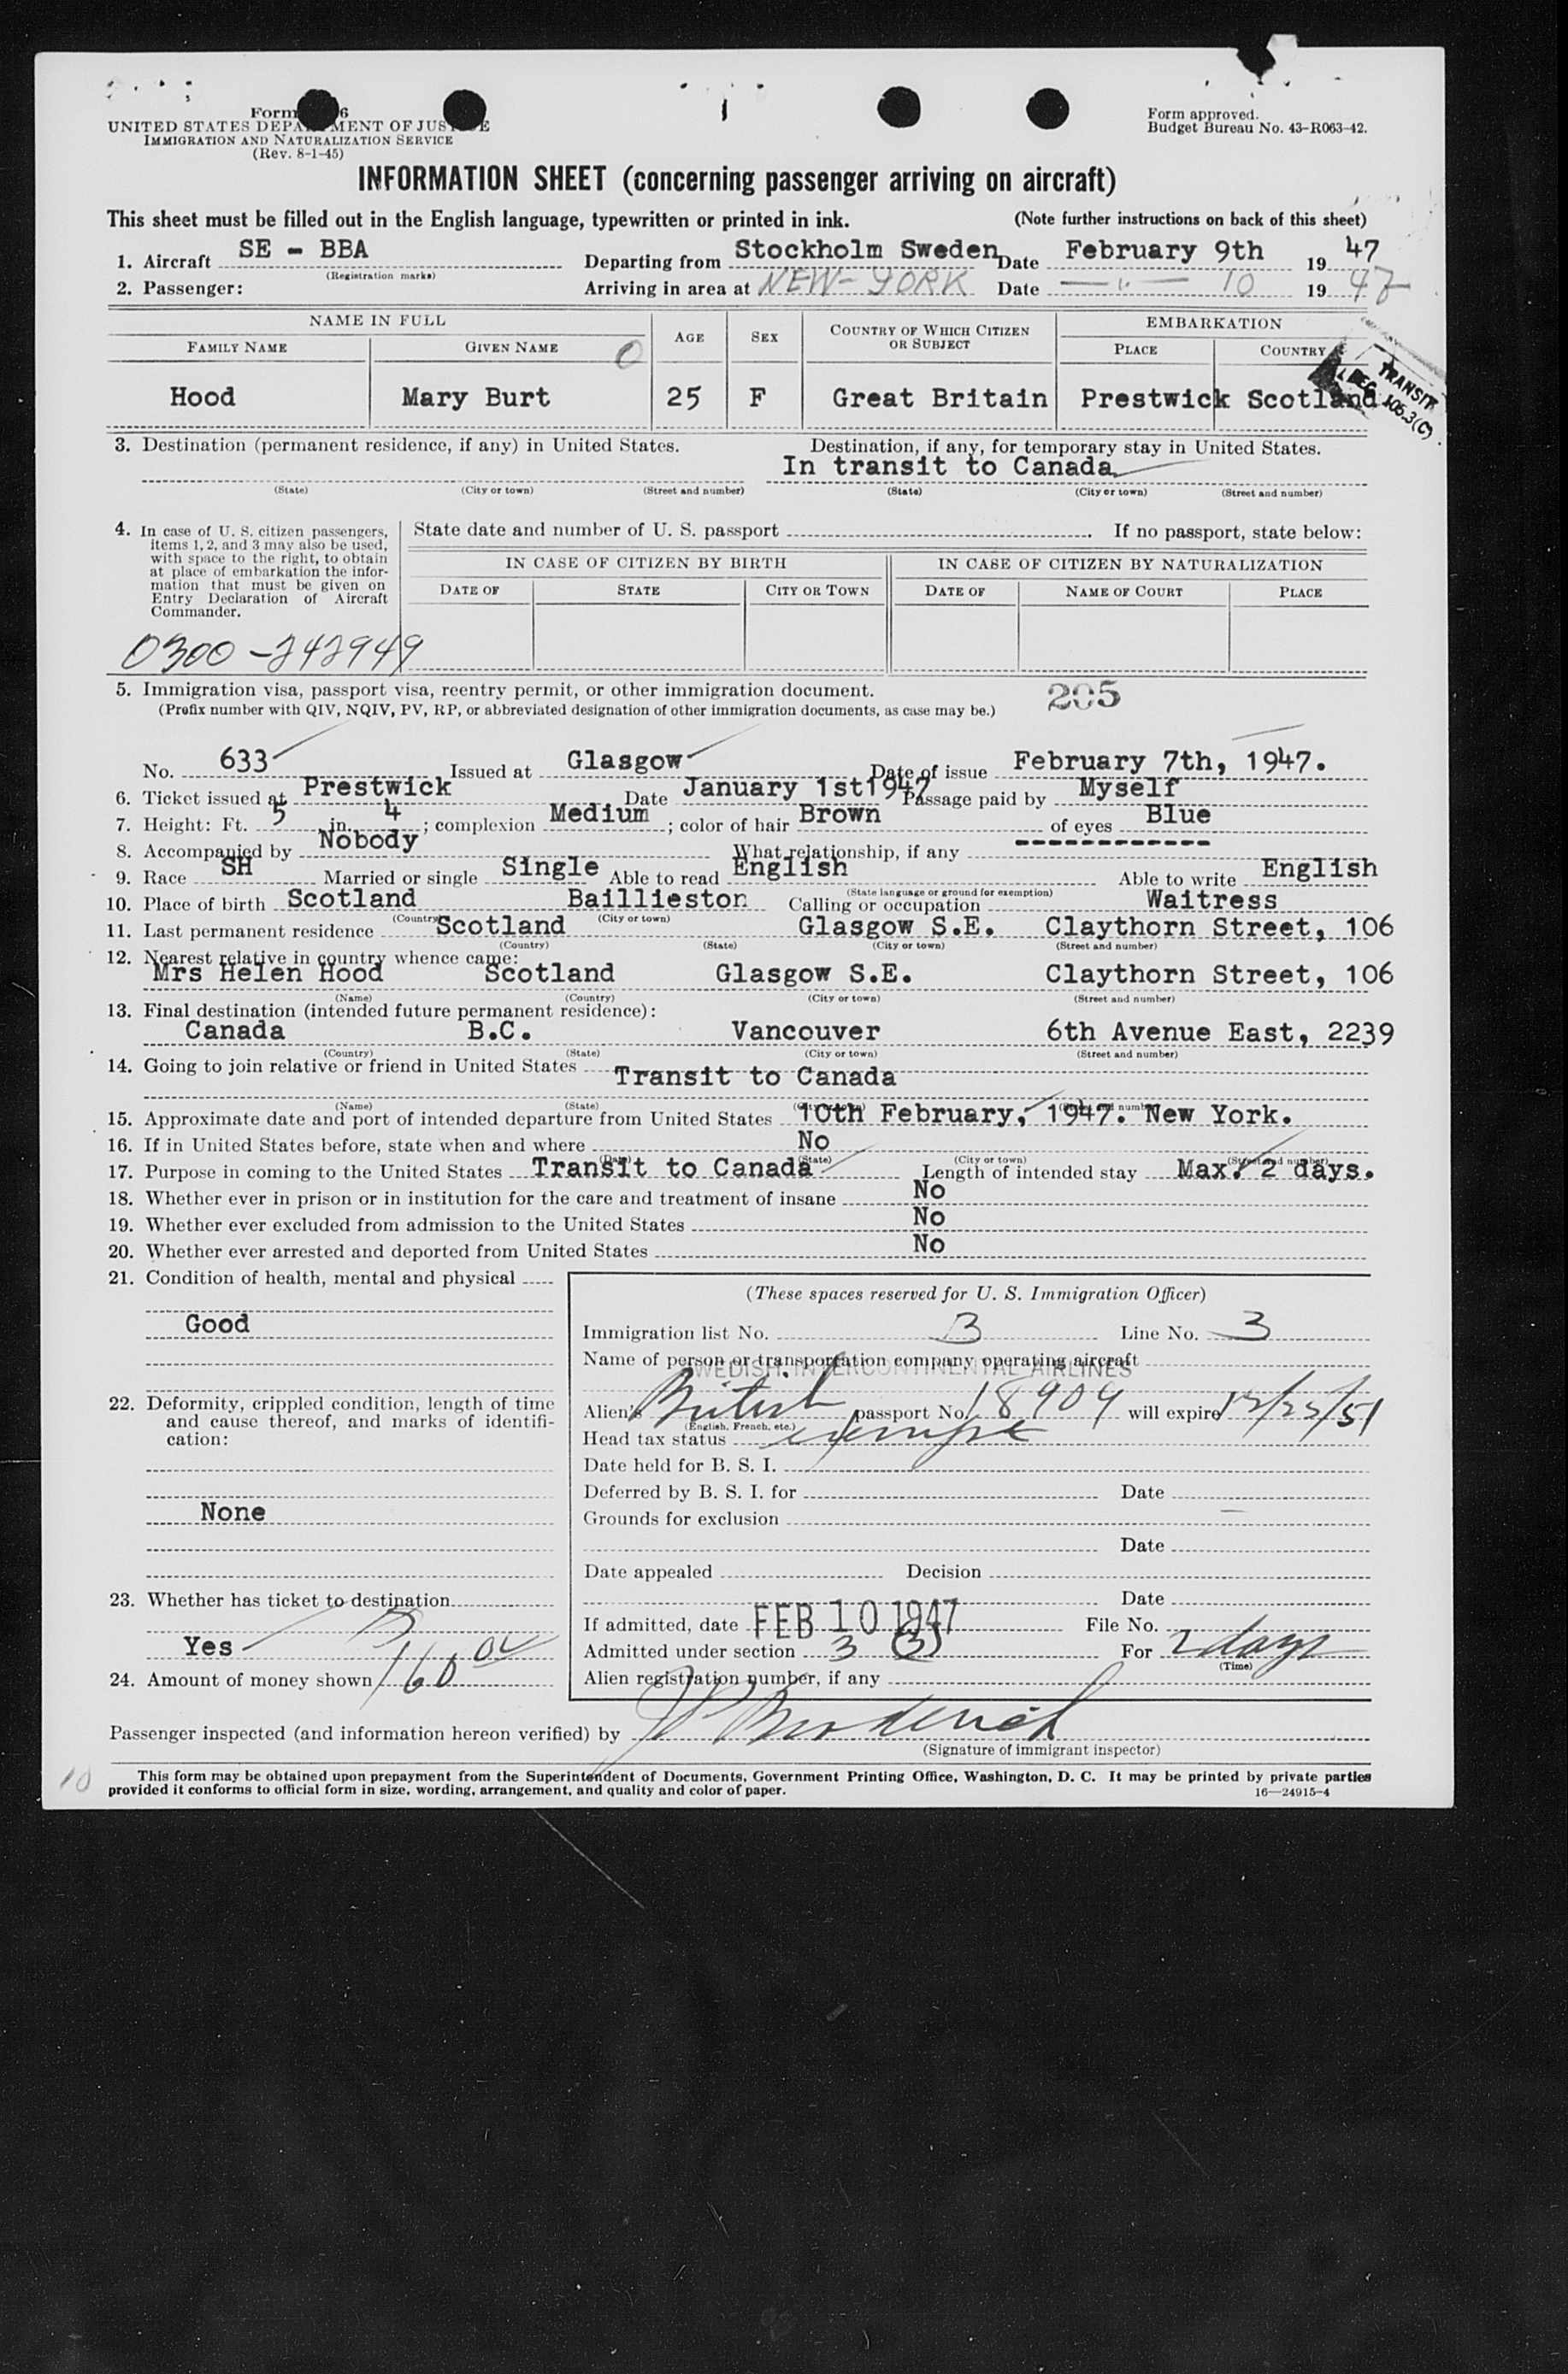 Form 6
UNITED STATES DEPARTMENT OF JUSTICE
IMMIGRATION AND NATURALIZATION SERVICE
(Rev. 8-1-45)
Form approved.
Budget Bureau No. 43-R063-42.
INFORMATION SHEET (concerning passenger arriving on aircraft)
This sheet must be filled out in the English language, typewritten or printed in ink. (Note further instructions on back of this sheet)
1. Aircraft SE - BBA Departing from Stockholm Sweden Date February 9th 19 47
(Registration marks)
2. Passenger: Arriving in area at NEW-YORK Date — " — 10 19 47
NAME IN FULL AGE SEX COUNTRY OF WHICH CITIZEN OR SUBJECT EMBARKATION
FAMILY NAME GIVEN NAME PLACE COUNTRY
TRANSIT
REG. 106.3(C)
Hood Mary Burt 25 F Great Britain Prestwick Scotland
3. Destination (permanent residence, if any) in United States. Destination, if any, for temporary stay in United States.
In transit to Canada
(State) (City or town) (Street and number) (State) (City or town) (Street and number)
4. In case of U. S. citizen passengers, items 1, 2, and 3 may also be used, with space to the right, to obtain at place of embarkation the information that must be given on Entry Declaration of Aircraft Commander.
State date and number of U. S. passport . If no passport, state below:
IN CASE OF CITIZEN BY BIRTH IN CASE OF CITIZEN BY NATURALIZATION
DATE OF STATE CITY OR TOWN DATE OF NAME OF COURT PLACE
0300-242949
5. Immigration visa, passport visa, reentry permit, or other immigration document. 205
(Prefix number with QIV, NQIV, PV, RP, or abbreviated designation of other immigration documents, as case may be.)
No. 633 Issued at Glasgow Date of issue February 7th, 1947.
6. Ticket issued at Prestwick Date January 1st 1947 Passage paid by Myself
7. Height: Ft. 5 in. 4 ; complexion Medium ; color of hair Brown of eyes Blue
8. Accompanied by Nobody What relationship, if any ------------
9. Race SH Married or single Single Able to read English Able to write English
(State language or ground for exemption)
10. Place of birth Scotland Baillieston Calling or occupation Waitress
(Country) (City or town)
11. Last permanent residence Scotland Glasgow S.E. Claythorn Street, 106
(Country) (State) (City or town) (Street and number)
12. Nearest relative in country whence came:
Mrs Helen Hood Scotland Glasgow S.E. Claythorn Street, 106
(Name) (Country) (City or town) (Street and number)
13. Final destination (intended future permanent residence):
Canada B.C. Vancouver 6th Avenue East, 2239
(Country) (State) (City or town) (Street and number)
14. Going to join relative or friend in United States Transit to Canada
(Name) (State) (City or town) (Street and number)
15. Approximate date and port of intended departure from United States 10th February, 1947. New York.
16. If in United States before, state when and where No
(Date) (State) (City or town) (Street and number)
17. Purpose in coming to the United States Transit to Canada Length of intended stay Max. 2 days.
18. Whether ever in prison or in institution for the care and treatment of insane No
19. Whether ever excluded from admission to the United States No
20. Whether ever arrested and deported from United States No
21. Condition of health, mental and physical
Good
22. Deformity, crippled condition, length of time and cause thereof, and marks of identification:
None
23. Whether has ticket to destination
Yes
24. Amount of money shown 160 00
(These spaces reserved for U. S. Immigration Officer)
Immigration list No. B Line No. 3
Name of person or transportation company operating aircraft
SWEDISH INTERCONTINENTAL AIRLINES
Alien's British passport No. 18904 will expire 12/23/51
(English, French, etc.)
Head tax status exempt
Date held for B. S. I.
Deferred by B. S. I. for Date
Grounds for exclusion
Date
Date appealed Decision
Date
If admitted, date FEB 10 1947 File No.
Admitted under section 3 (3) For 2 days
(Time)
Alien registration number, if any
Passenger inspected (and information hereon verified) by
(Signature of immigrant inspector)
10
This form may be obtained upon prepayment from the Superintendent of Documents, Government Printing Office, Washington, D. C. It may be printed by private parties
provided it conforms to official form in size, wording, arrangement, and quality and color of paper. 16—24915-4